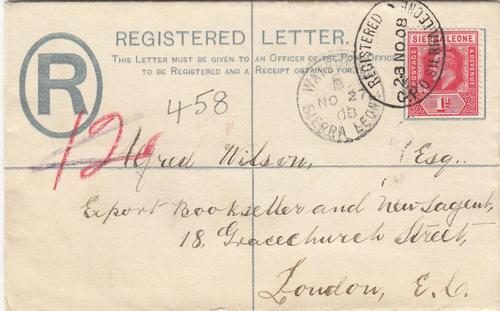 REGISTERED LETTER.
THIS LETTER MUST BE GIVEN TO AN OFFICER OF THE POST OFFICE
TO BE REGISTERED AND A RECEIPT OBTAINED FOR
R
REGISTERED
23 NO 08
G.P.O. SIERRA LEONE
SIERRA LEONE
POSTAGE
& REVENUE
1d
B
NO 27
08
SIERRA LEONE
458
Alfred Wilson, Esq.,
Export Bookseller and Newsagent,
18, Gracechurch Street,
London, E.C.